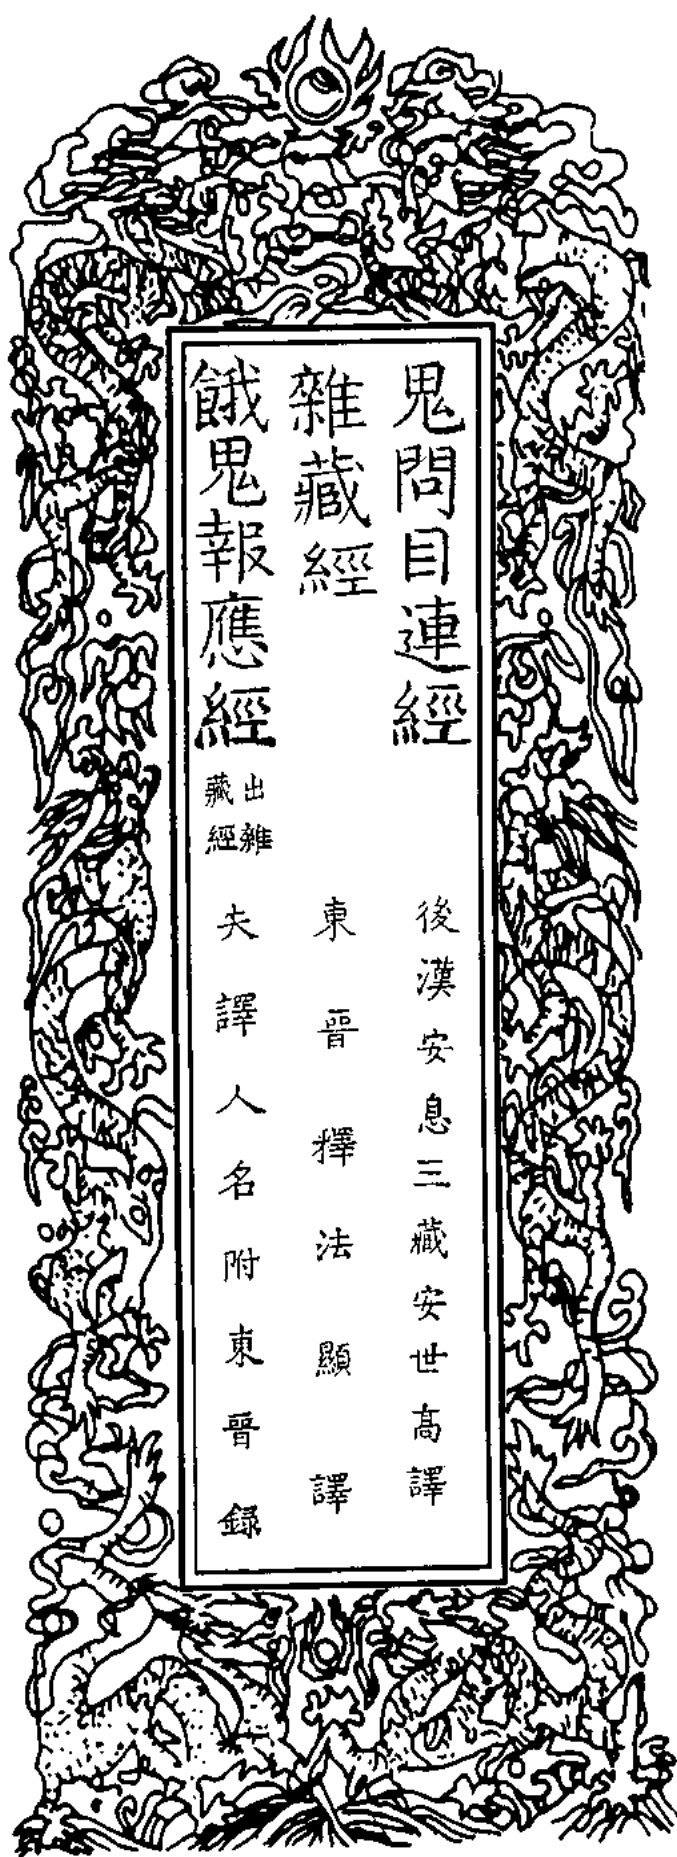 鬼問目連經
後漢安息三藏安世高譯
雜藏經
東晉釋法顯譯
餓鬼報應經
出雜
藏經
失譯人名附東晉録